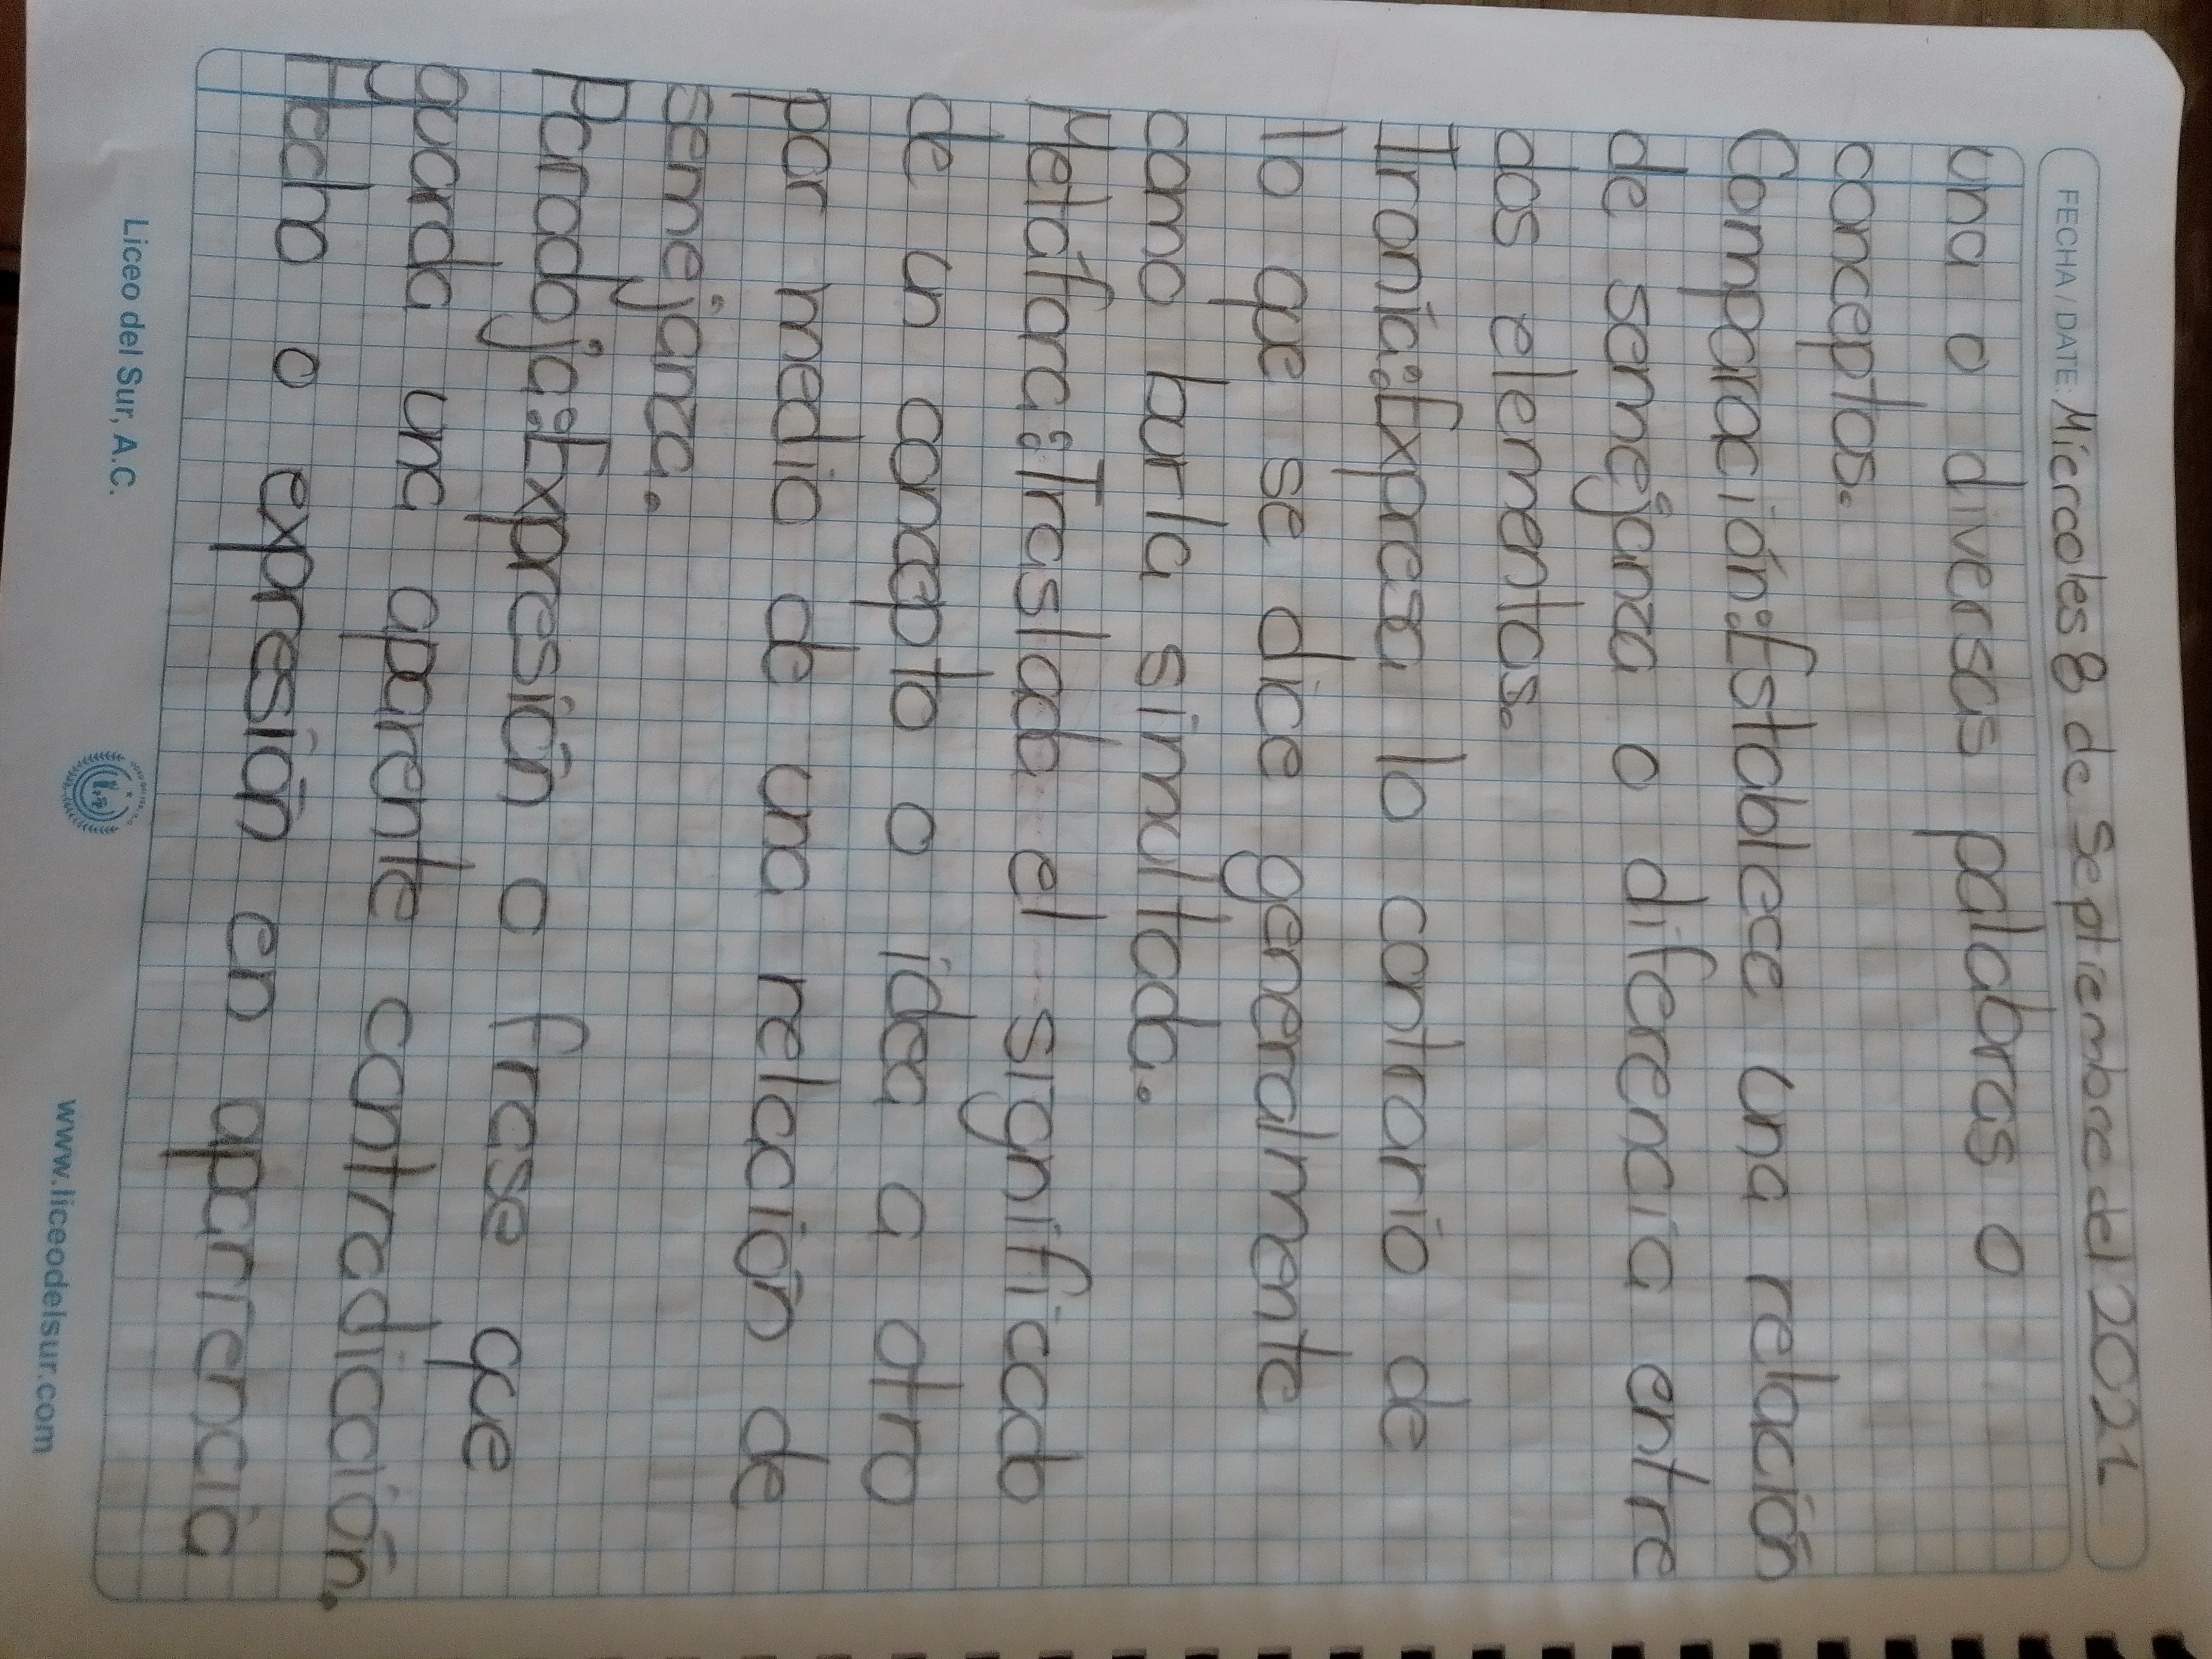 FECHA / DATE: Miercoles 8 de Septiembre del 2021
una o diversas palabras o
conceptos.
Comparación:Establece una relación
de semejanza o diferencia entre
dos elementos.
Ironía:Expresa lo contrario de
lo que se dice generalmente
como burla simultada.
Metáfora:Traslada el significado
de un concepto o idea a otro
por medio de una relación de
semejanza.
Paradoja:Expresión o frase que
guarda una aparente contradicción.
Hecho o expresión en aparriencia
Liceo del Sur, A.C.
www.liceodelsur.com